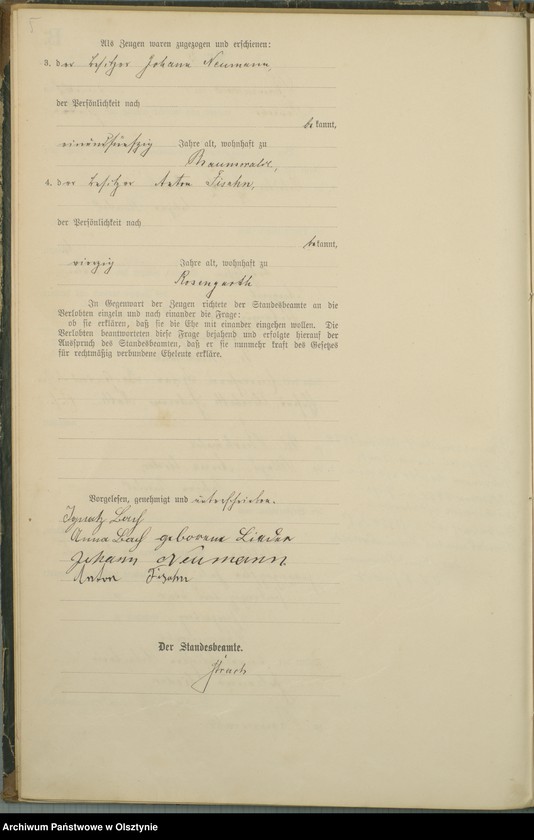 5
Als Zeugen waren zugezogen und erschienen:
3. der Besitzer Johann Neumann,
der Persönlichkeit nach
bekannt,
einundfünfzig Jahre alt, wohnhaft zu
Braunswalde,
4. der Besitzer Anton Fisahn,
der Persönlichkeit nach
bekannt,
vierzig Jahre alt, wohnhaft zu
Rosengarth
In Gegenwart der Zeugen richtete der Standesbeamte an die
Verlobten einzeln und nach einander die Frage:
ob sie erklären, daß sie die Ehe mit einander eingehen wollen. Die
Verlobten beantworteten diese Frage bejahend und erfolgte hierauf der
Ausspruch des Standesbeamten, daß er sie nunmehr kraft des Gesetzes
für rechtmäßig verbundene Eheleute erkläre.
Vorgelesen, genehmigt und unterschrieben.
Ignatz Bach
Anna Bach geborene Lieder
Johann Neumann
Anton Fisahn
Der Standesbeamte.
Archiwum Państwowe w Olsztynie